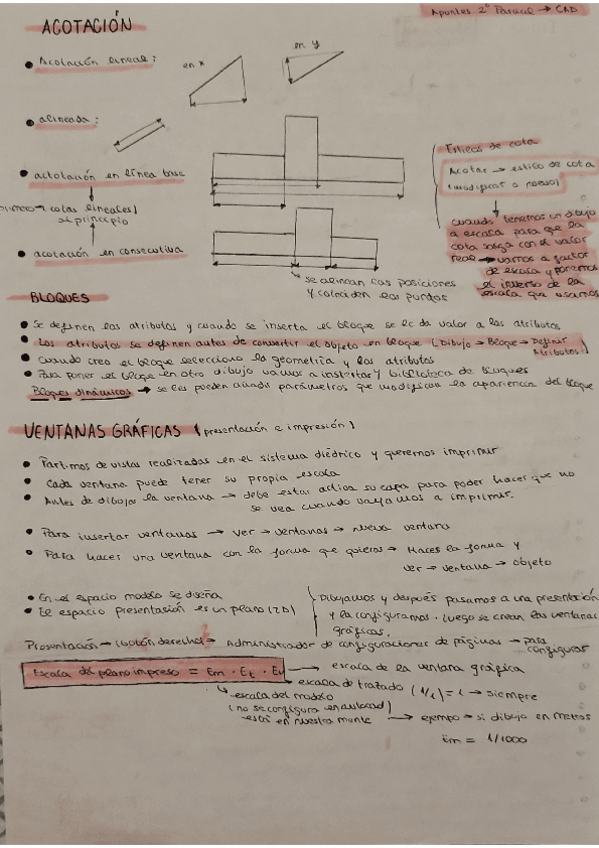 Apuntes 2º Parcial → CAD
ACOTACIÓN
• Acotación lineal:
en x
en y
• alineada:
• acotación en línea base
primero → cotas lineales
al principio
• acotación en consecutiva
se alinean las posiciones
y coinciden los puntos
Estilos de cota
Acotar → estilo de cota
(modificar o nuevo)
cuando tenemos un dibujo
a escala para que la
cota salga con el valor
real → vamos a factor
de escala y ponemos
el inverso de la
escala que usamos
BLOQUES
• Se definen los atributos y cuando se inserta el bloque se le da valor a los atributos
• Los atributos se definen antes de convertir el objeto en bloque (Dibujo → Bloque → Definir
Atributos)
• Cuando creo el bloque selecciono la geometría y los atributos
• Para poner el bloque en otro dibujo vamos a insertar y biblioteca de bloques
Bloques dinámicos → se les pueden añadir parámetros que modifican la apariencia del bloque
VENTANAS GRÁFICAS (presentación e impresión)
• Partimos de vistas realizadas en el sistema diédrico y queremos imprimir
• Cada ventana puede tener su propia escala
• Antes de dibujar la ventana → debe estar activa su capa para poder hacer que no
se vea cuando vayamos a imprimir.
• Para insertar ventanas → ver → ventanas → nueva ventana
• Para hacer una ventana con la forma que quieras → Haces la forma y
ver → ventana → objeto
• En el espacio modelo se diseña
• El espacio presentación es un plano (2D)
Dibujamos y después pasamos a una presentación
y la configuramos. Luego se crean las ventanas
gráficas.
Presentación → (botón derecho) → Administrador de configuraciones de páginas → para
configurar
Escala del plano impreso = Em · Et · Ev
→ escala de la ventana gráfica
→ escala de trazado (1/1) = 1 → siempre
→ escala del modelo
(no se configura en autocad)
está en nuestra mente → ejemplo → si dibujo en metros
Em = 1/1000